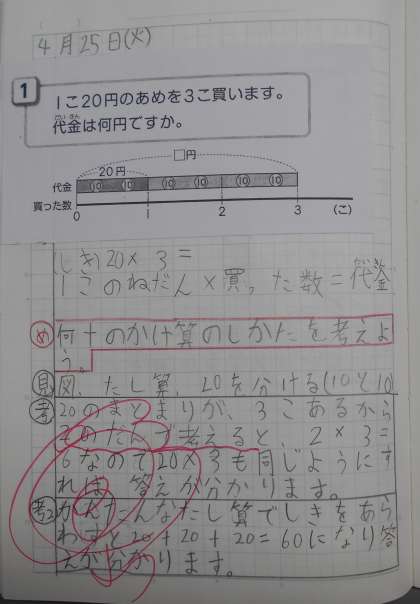 4月25日(火)
1
1こ20円のあめを3こ買います。
だいきん
代金は何円ですか。
□円
20円
代金 10 10 10 10 10 10
買った数
0 1 2 3 (こ)
(しき)20×3=
1このねだん×買った数=代金
め 何十のかけ算のしかたを考えよ
う。
見 図、たし算、20を分ける(10と10
考 20のまとまりが、3こあるから
2のだんで考えると、2×3=
6なので20×3も同じようにす
れば、答えが分かります。
考2 かんたんなたし算でしきをあら
わすと20+20+20=60になり答
えが分かります。